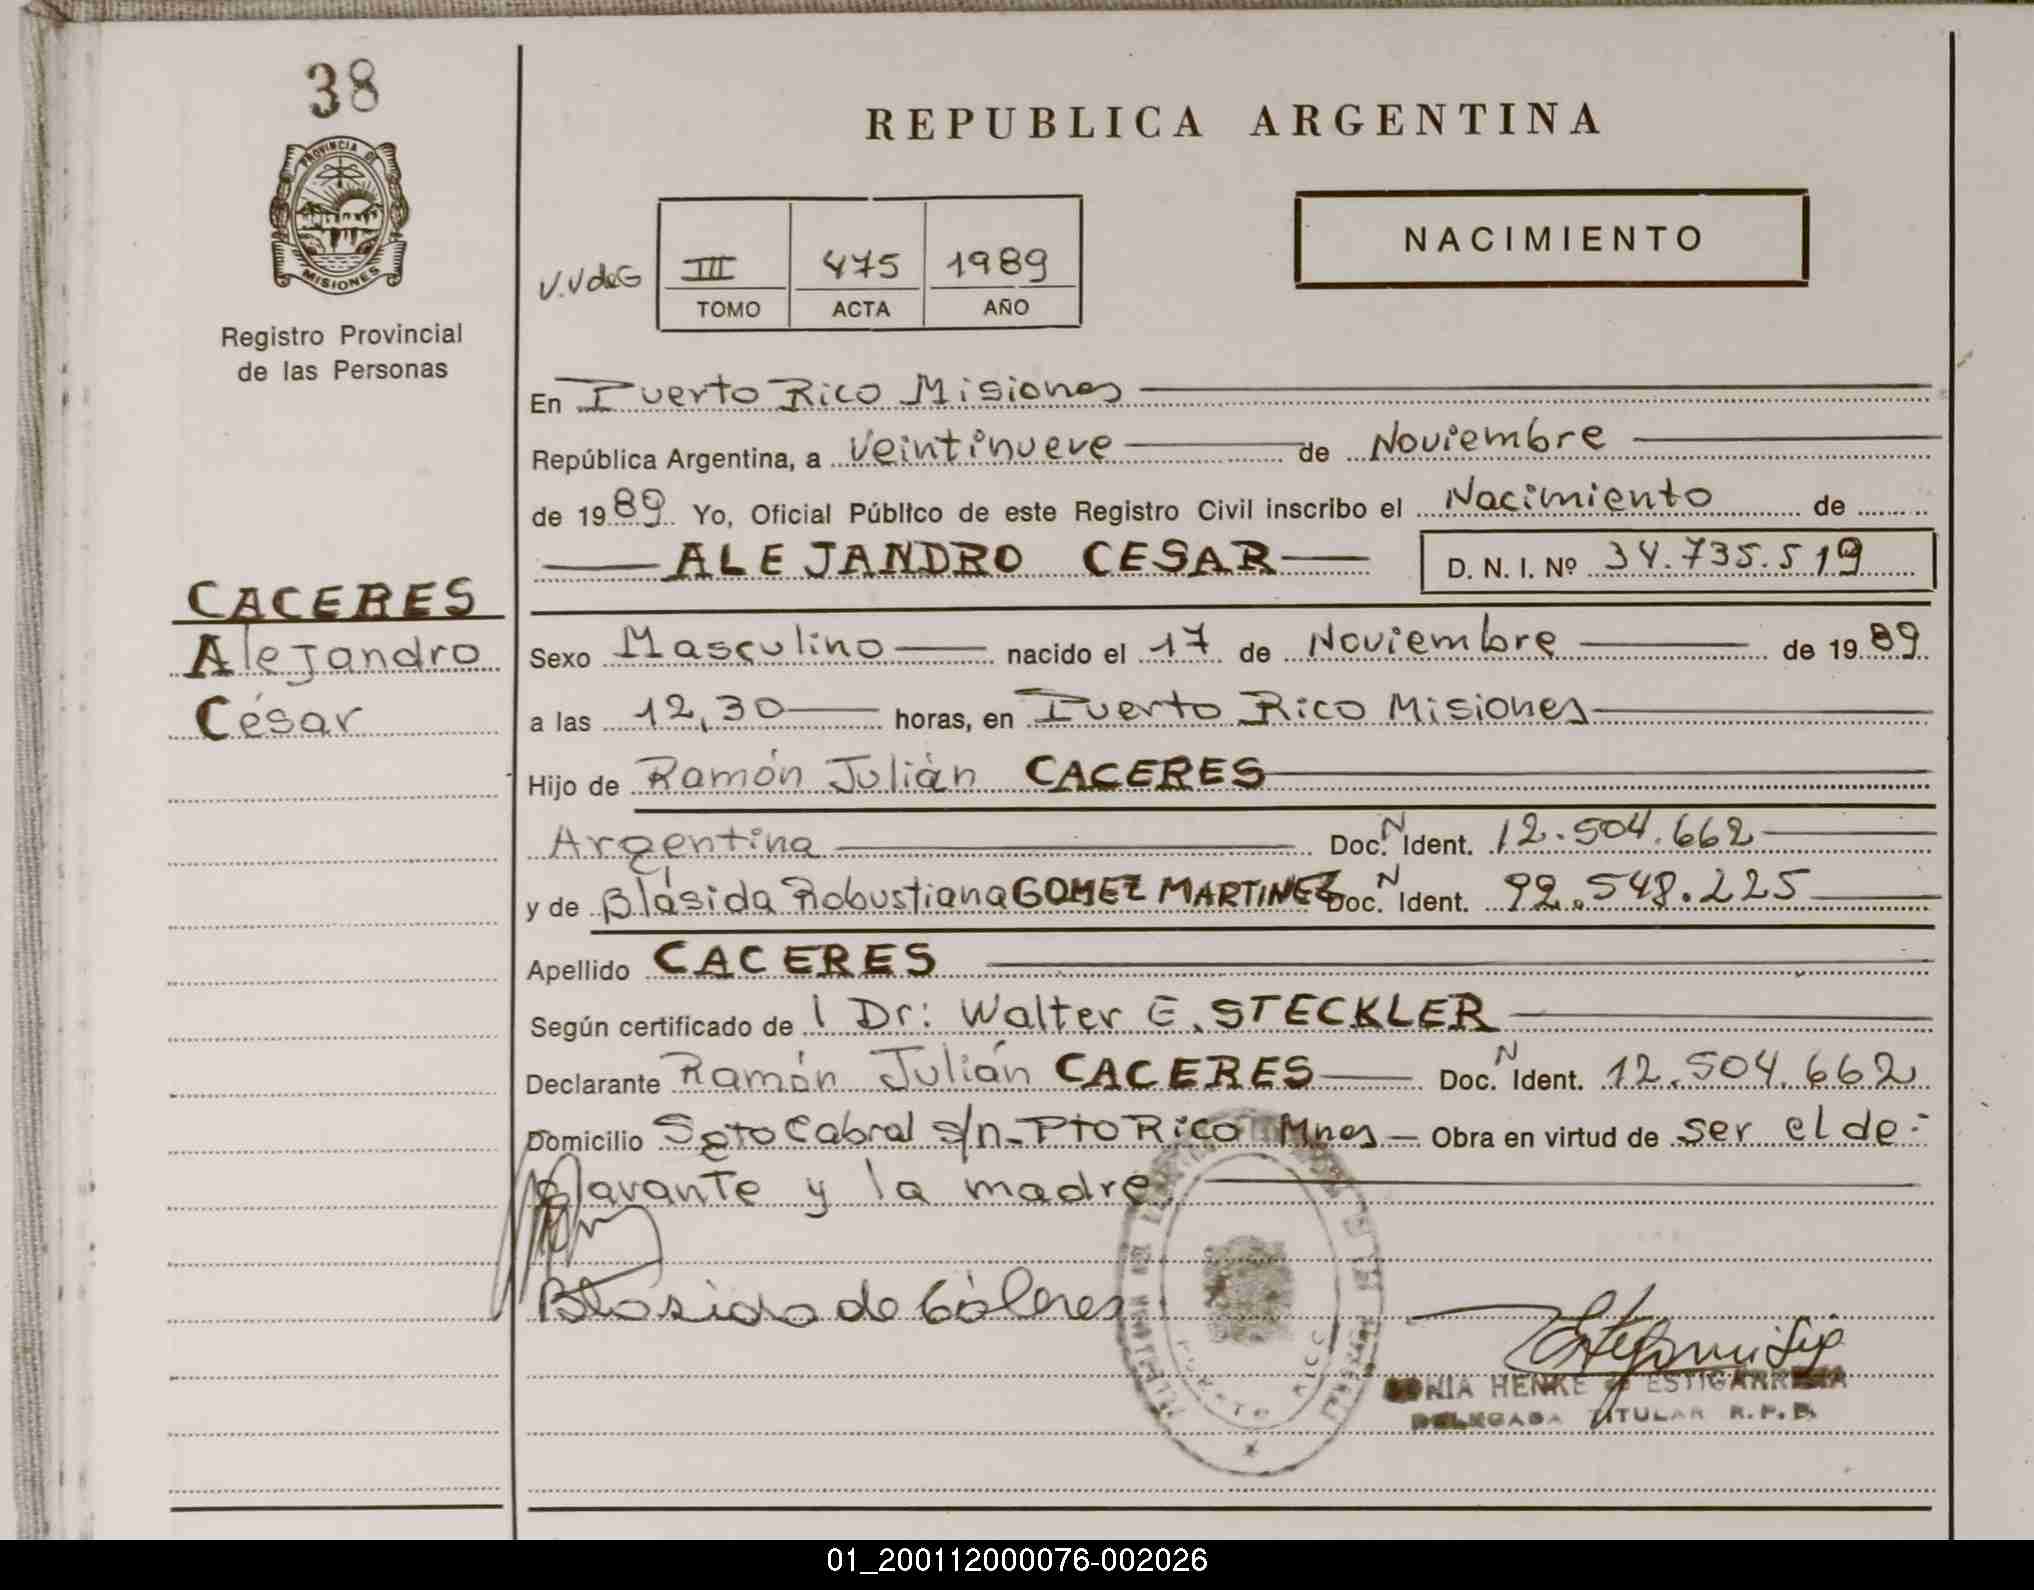 38
PROVINCIA DE
MISIONES
Registro Provincial
de las Personas
CACERES
Alejandro
César
REPUBLICA ARGENTINA
NACIMIENTO
V.V de G
III 475 1989
TOMO ACTA AÑO
En Puerto Rico Misiones
República Argentina, a veintinueve de Noviembre
de 1989 Yo, Oficial Público de este Registro Civil inscribo el Nacimiento de
ALEJANDRO CESAR D. N. I. Nº 34.735.519
Sexo Masculino nacido el 17 de Noviembre de 1989
a las 12,30 horas, en Puerto Rico Misiones
Hijo de Ramón Julián CACERES
Argentina Doc. N Ident. 12.504.662
y de Blásida Robustiana GOMEZ MARTINEZ Doc. N Ident. 92.548.225
Apellido CACERES
Según certificado de l Dr: Walter E. STECKLER
Declarante Ramón Julián CACERES Doc. N Ident. 12.504.662
Domicilio Sgto Cabral s/n-Pto Rico Mnes - Obra en virtud de ser el de-
clarante y la madre.
Blásida de Cáceres
PUERTO RICO
SONIA HENKE de ESTIGARRIBIA
DELEGADA TITULAR R.P.P.
01_200112000076-002026